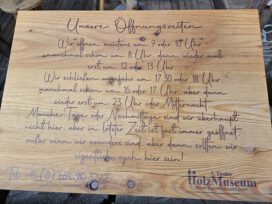 Unsere Öffnungszeiten
Wir öffnen meistens um 9 oder 10 Uhr
manchmal schon um 8 Uhr dann wieder mal
erst um 12 oder 13 Uhr
Wir schließen ungefähr um 17.30 oder 18 Uhr
manchmal schon um 16 oder 17 Uhr aber dann
wieder erst um 23 Uhr oder Mitternacht
Manche Tage oder Nachmittage sind wir überhaupt
nicht hier, aber in letzter Zeit ist fast immer geöffnet
außer wenn wir anders sind, aber dann sollten wir
eigentlich auch hier sein!
Tel.
HolzMuseum